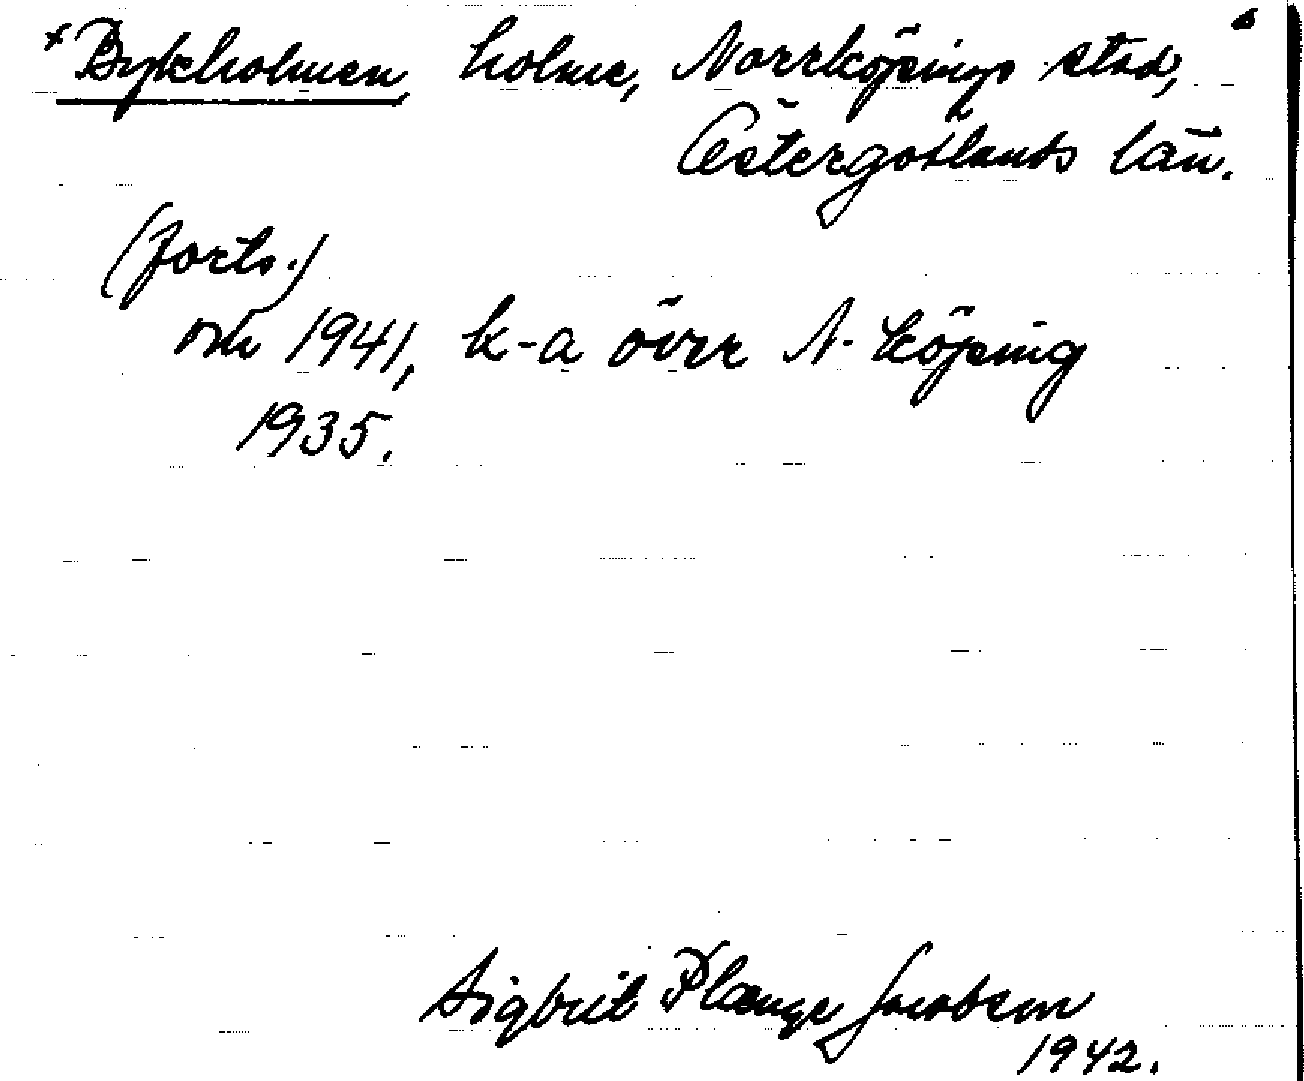 × Bykholmen, holme, Norrköpings stad,
Östergötlands län.
(forts.)
och 1941, k-a över N-köping
1935.
Sigbrit Plænge Jacobson
1942.